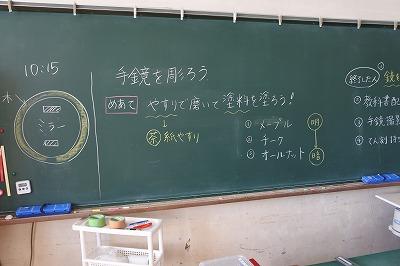 10:15
木
ミラー
手鏡を彫ろう
めあて やすりで磨いて塗料を塗ろう!
茶 紙やすり
① メープル
② チーク
③ オールナット
明
暗
終了した人
① 教科書配
③ 手鏡撮影